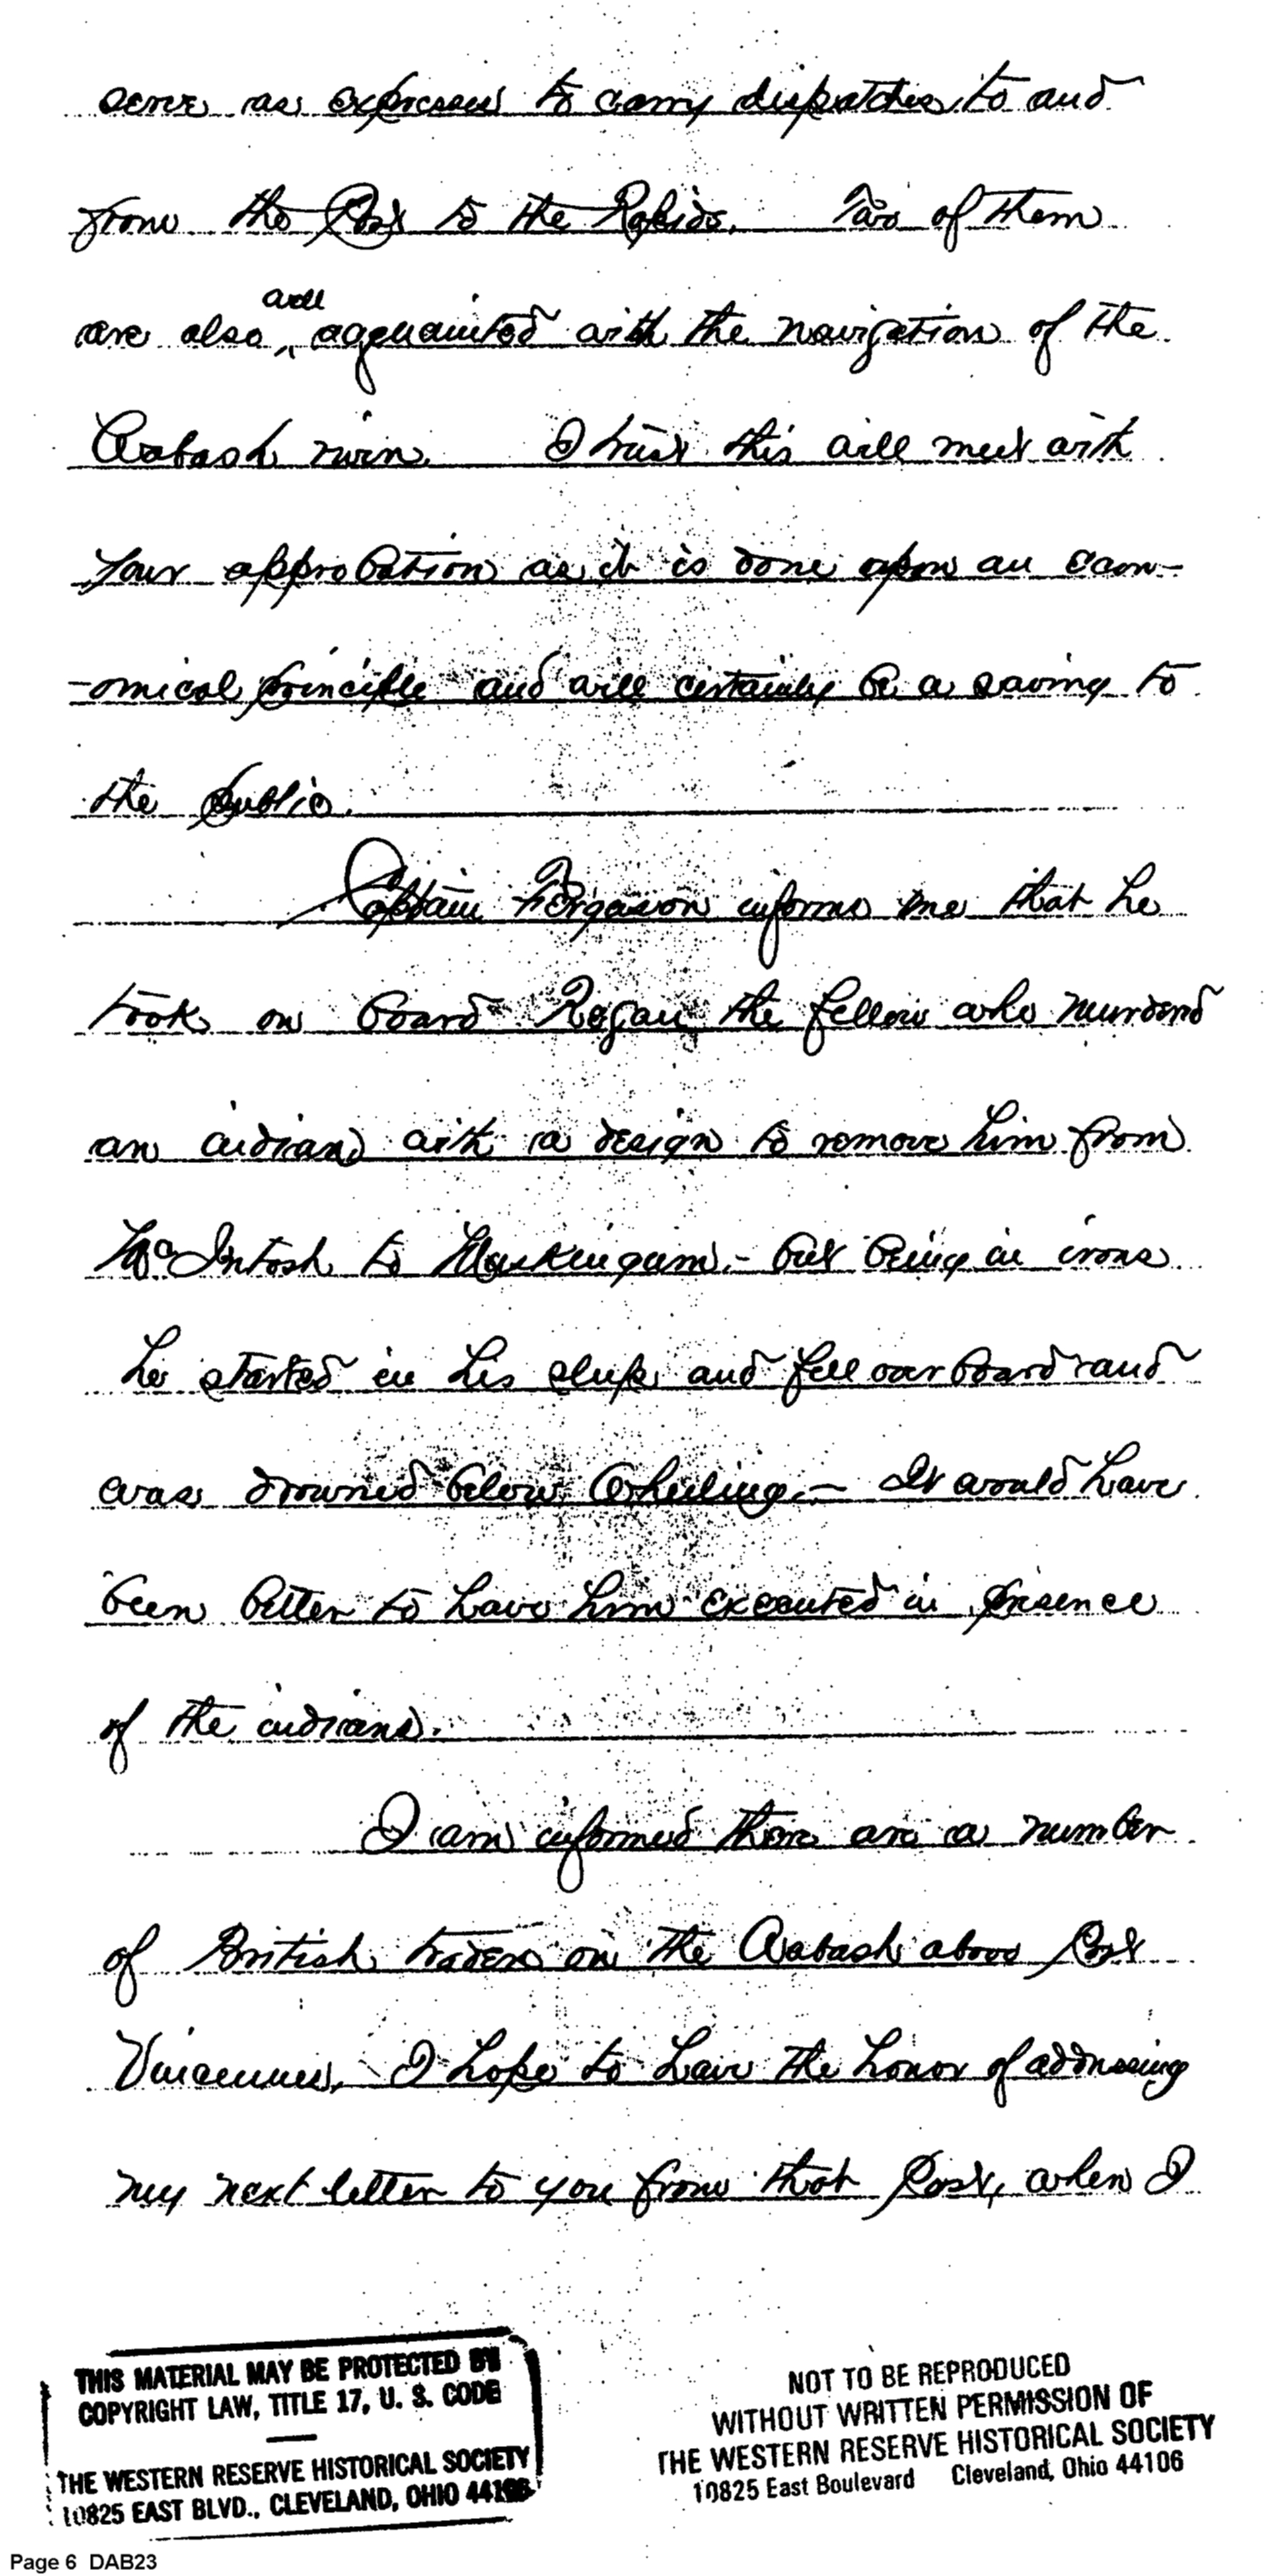 serve as expresses to carry dispatches to and
from the Post to the Rapids. Two of them
well
are also ^ acquainted with the navigation of the
Wabash river. I trust this will meet with
your approbation as it is done upon an econ-
-omical principle and will certainly be a saving to
the public.
Captain Ferguson informs me that he
took on board Rogan the fellow who murderd
an indian, with a design to remove him from
McIntosh to Muskingum. - but being in irons
he started in his sleep and fell overboard and
was drowned below Wheeling. - It would have
been better to have him executed in presence
of the indians.
I am informed there are a number
of British traders on the Wabash above Post
Vincennes, I hope to have the honor of addressing
my next letter to you from that Post, when I
THIS MATERIAL MAY BE PROTECTED BY
COPYRIGHT LAW, TITLE 17, U. S. CODE
THE WESTERN RESERVE HISTORICAL SOCIETY
10825 EAST BLVD., CLEVELAND, OHIO 44106
NOT TO BE REPRODUCED
WITHOUT WRITTEN PERMISSION OF
THE WESTERN RESERVE HISTORICAL SOCIETY
10825 East Boulevard Cleveland, Ohio 44106
Page 6 DAB23